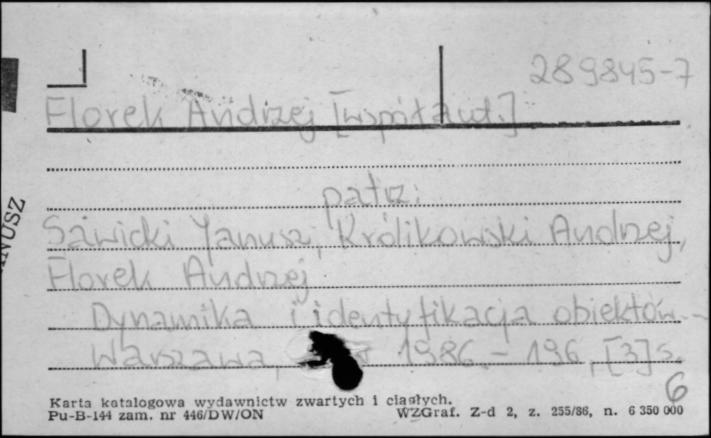 289845-7
Florek Andrzej [współaut.]
patrz:
Sawicki Janusz, Królikowski Andrzej,
Florek Andrzej
Dynamika i identyfikacja obiektów...
Warszawa, 1986. - 196, [3] s.
6
Karta katalogowa wydawnictw zwartych i ciągłych.
Pu-B-144 zam. nr 446/DW/ON WZGraf. Z-d 2, z. 255/86, n. 6 350 000
NUSZ